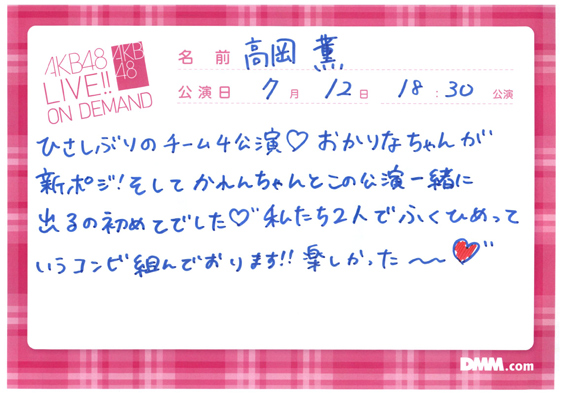 AKB48
LIVE!!
ON DEMAND
AKB
48
名 前 高岡 薫
公演日 7月 12日 18:30 公演
ひさしぶりのチーム4公演♡ おかりなちゃんが
新ポジ!そして かれんちゃんとこの公演一緒に
出るの初めてでした♡゛私たち2人でふくひめって
いうコンビ組んでおります!! 楽しかった〜〜♥゛
DMM.com